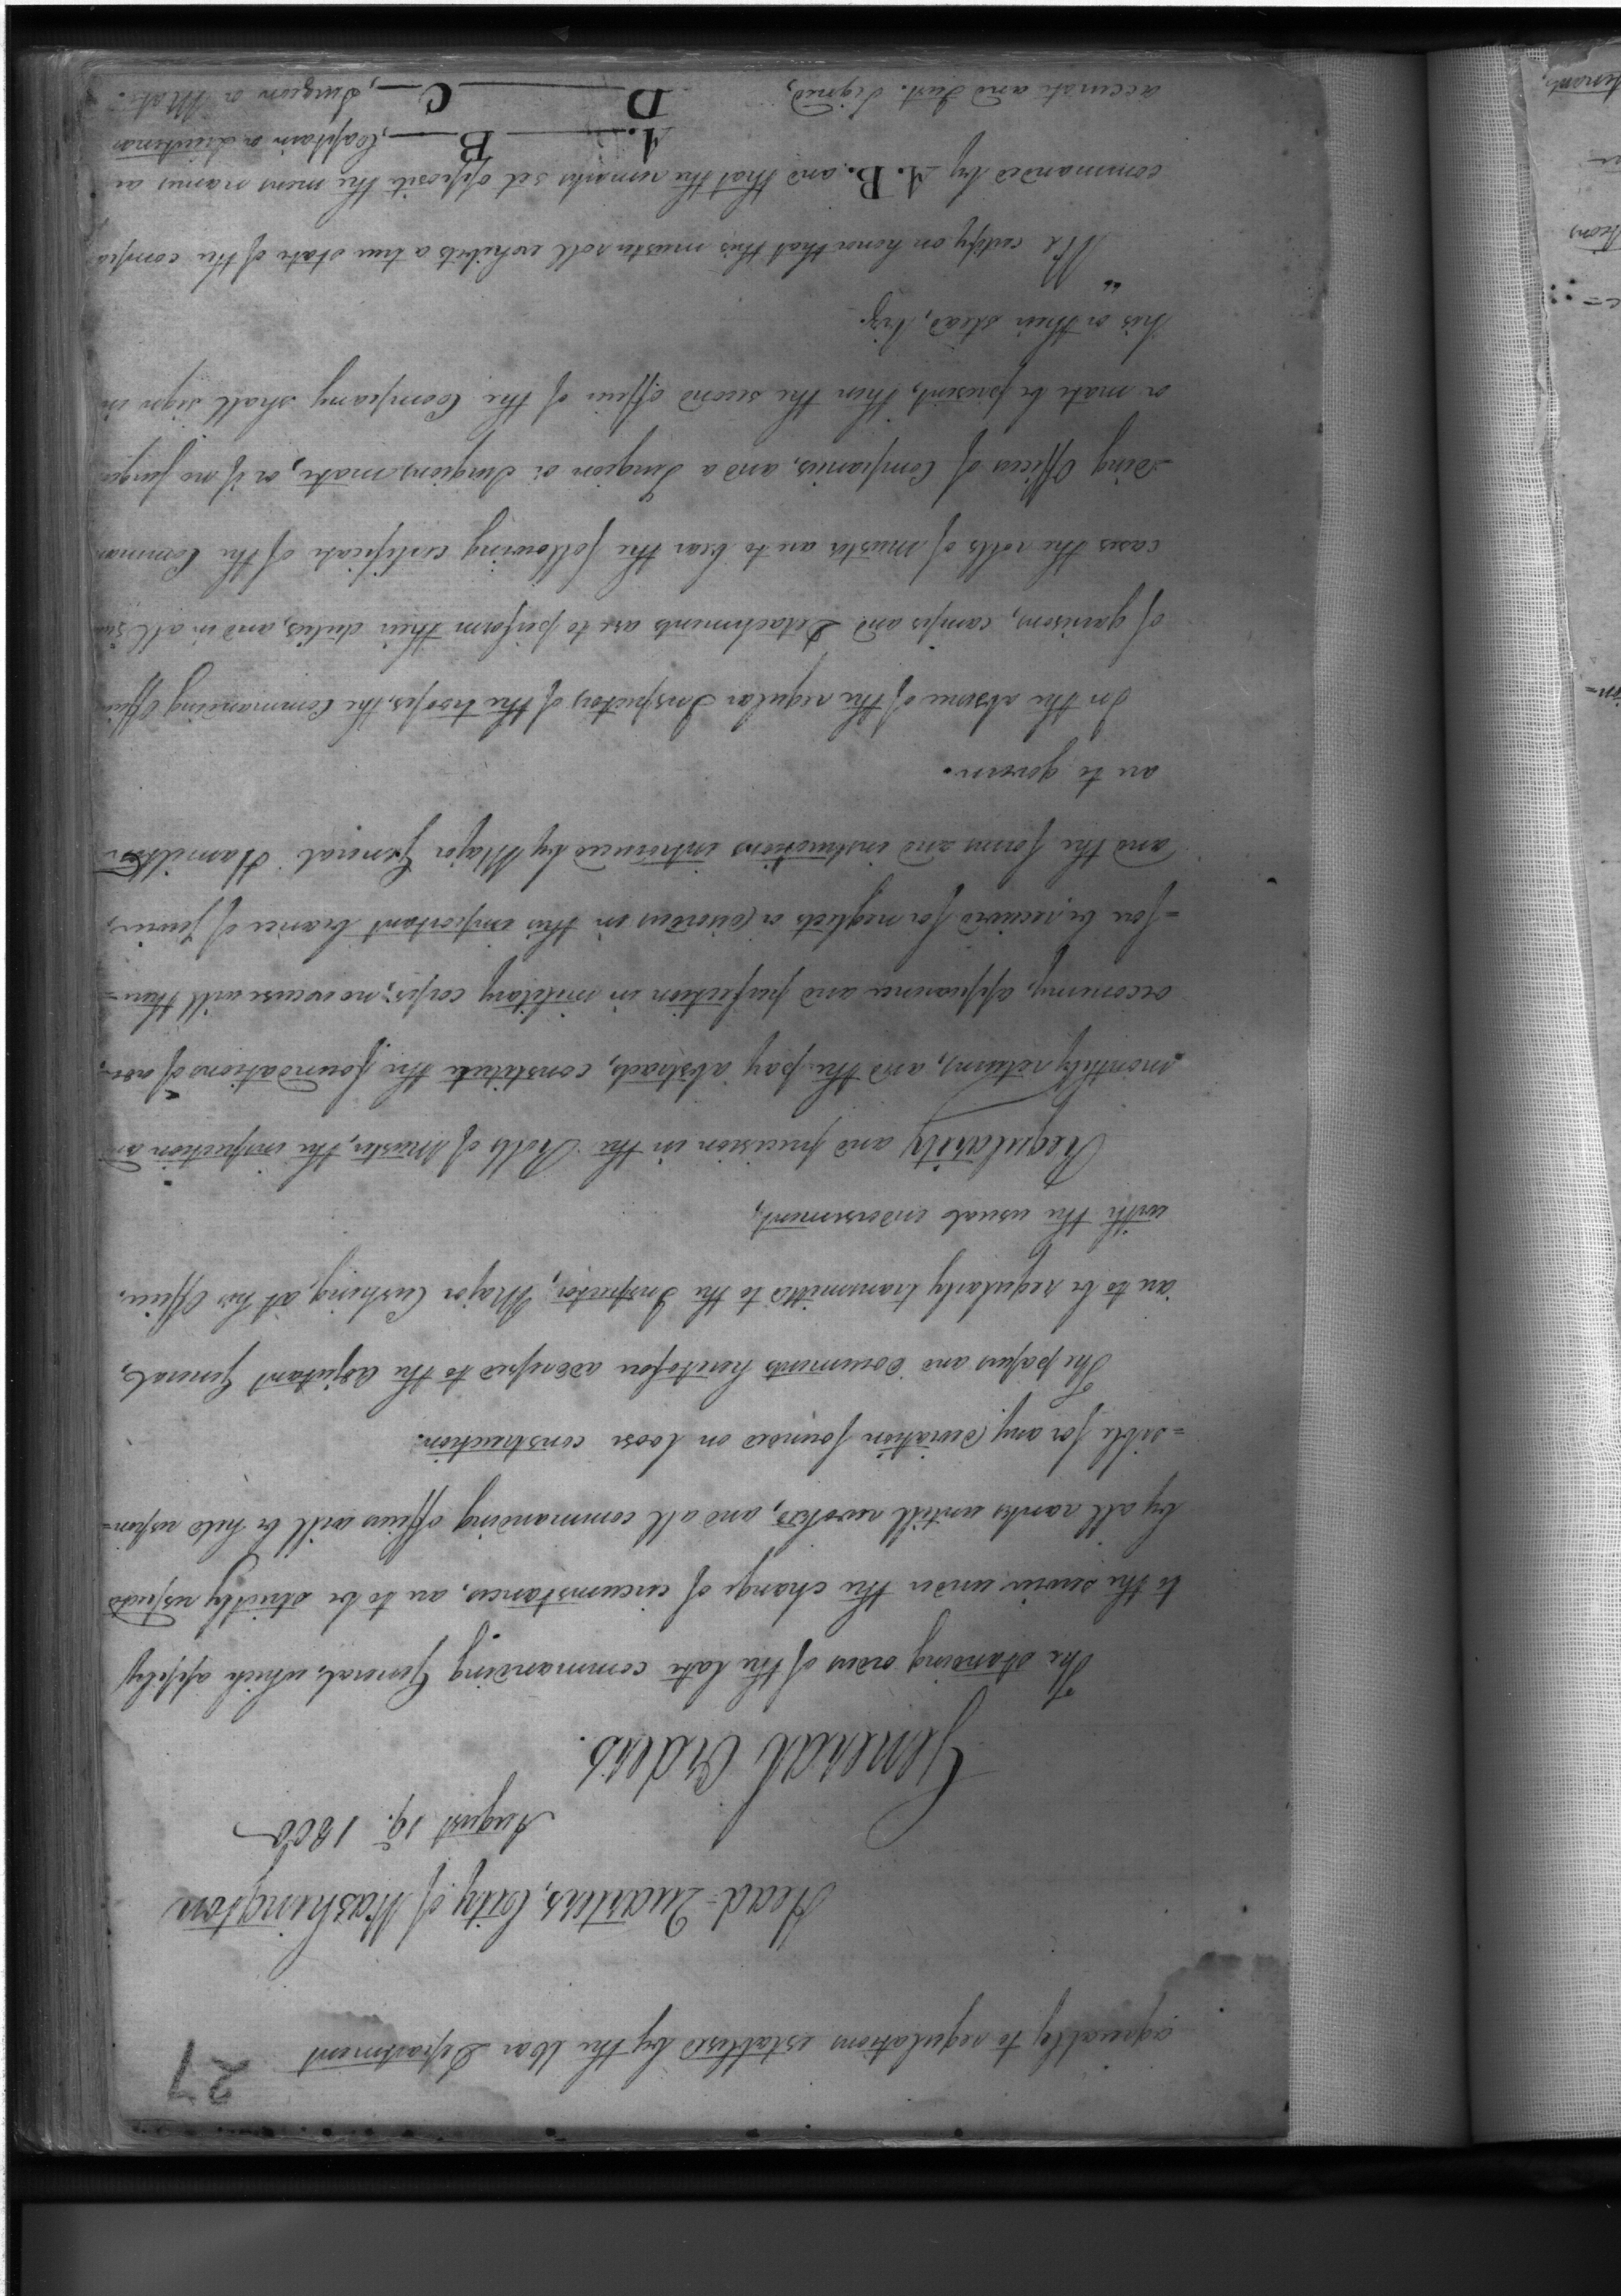 27
agreeably to regulations establised by the War Department
Head-Quarters, City of Washington
August 19. 1800
General Orders.
The standing orders of the late commanding General, which apply
to the service under the change of circumstances, are to be strictly respected
by all ranks untill revoked, and all commanding officers will be held respon=
=sible for any deviation founded on loose construction.
The papers and documents heretofore addressed to the Adjutant General,
are to be regularly transmitted to the Inspector, Major Cushing, at his Office,
with the usual endorsement,
Regularity and precision in the Rolls of Muster, the inspection and
monthly returns, and the pay abstracts, constitute the foundations of
oeconomy, appearance and perfection in military corps; no excuse will there=
=fore be received for neglects or omissions in this important branch of service,
and the forms and instructions introduced by Major General Hamilton
are to govern.
In the absence of the regular Inspectors of the troops, the Commanding Officers
of garrisons, camps and Detachments are to perform their duties, and in all such
cases the rolls of muster are to bear the following certificate of the Comman
=ding Officers of Companies, and a Surgeon or Surgeons mate, or if no Surgeon
or mate be present, then the second officer of the Company shall sign in
his or their stead, Viz.
"We certify on honor that this muster roll exhibits a true state of the company
commanded by A. B. and that the remarks set opposite the mens names are
accurate and Just. Signed, A. B , Captain or Lieutenant
D C , Surgeon or Mate.